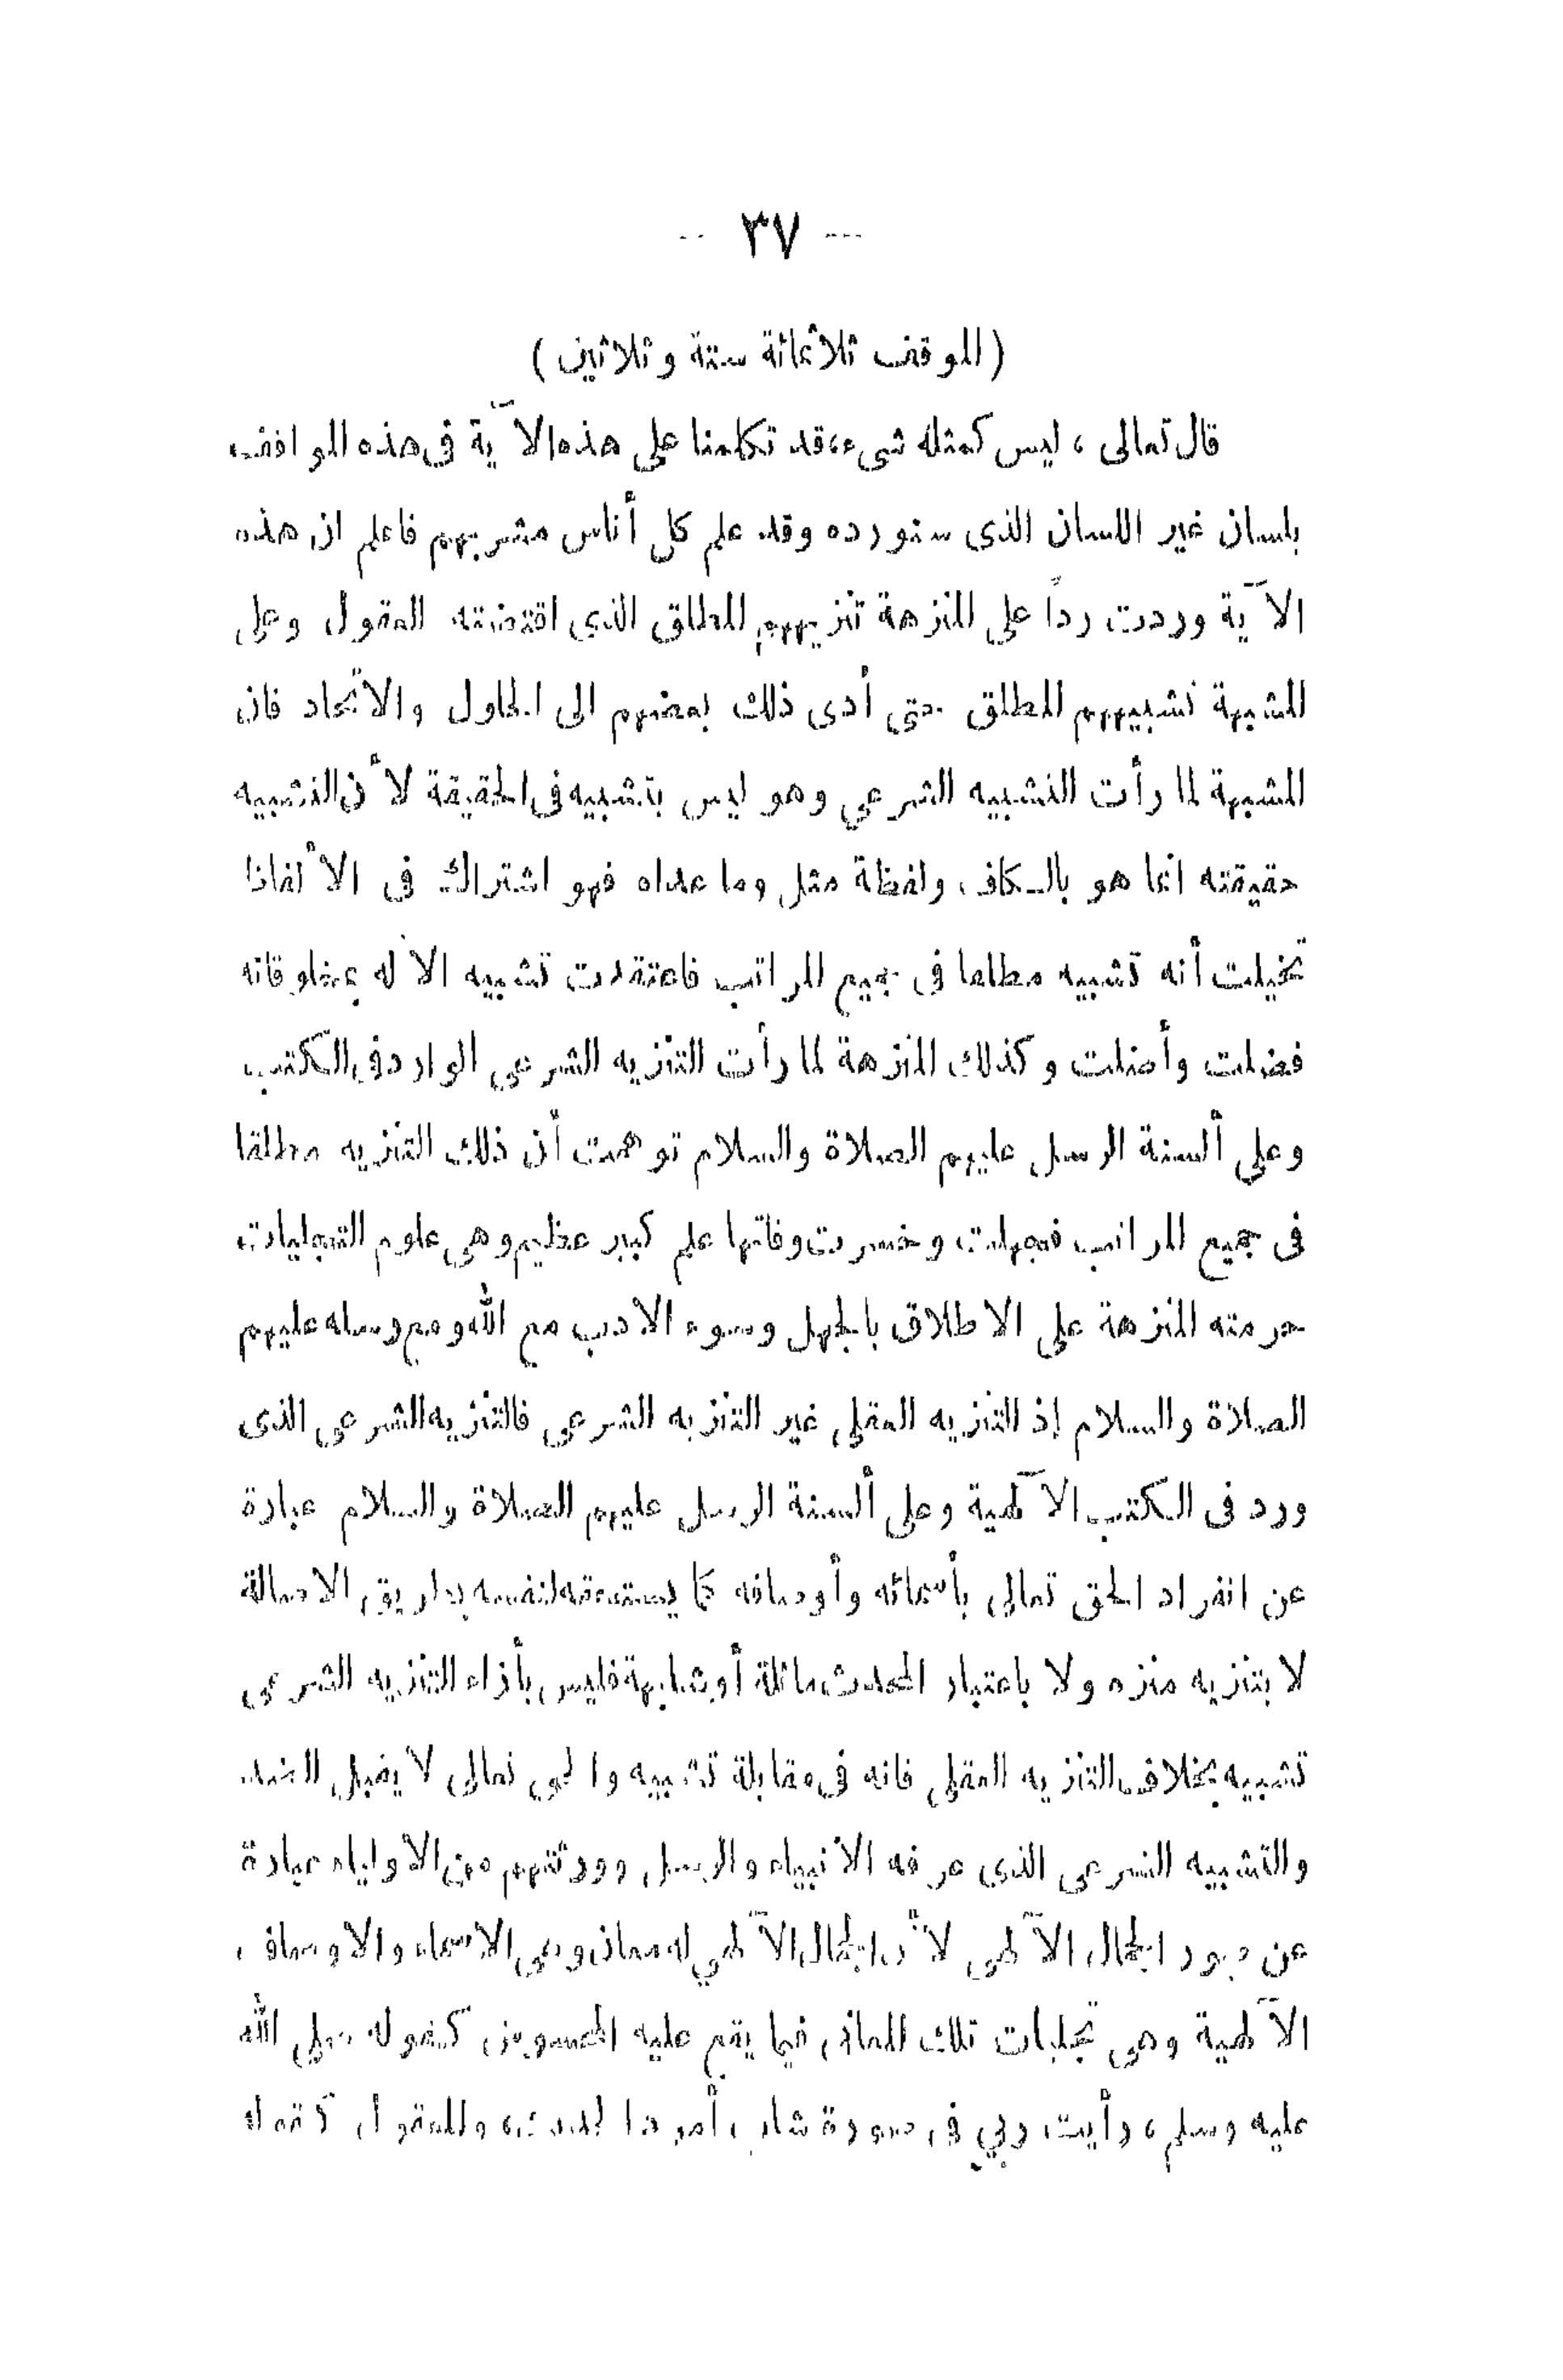 ٣٧
(الموقف ثلاثمائة ستة وثلاثين)
قال تعالى، ليس كمثله شيء، قد تكلمنا على هذه الآية في هذه المواقف
بلسان غير اللسان الذى سنورده وقد علم كل أناس مشربهم فاعلم ان هذه
الآية وردت رداً على المنزهة تنزيههم المطلق الذى اقتضته العقول وعلى
المشبهة تشبيههم المطلق حتى أدى ذلك بعضهم الى الحلول والاتحاد فان
المشبهة لما رأت التشبيه الشرعى وهو ليس بتشبيه فى الحقيقة لأن التشبيه
حقيقته انما هو بالكاف، ولفظة مثل وما عداه فهو اشتراك فى الألفاظ
تخيلت أنه تشبيه مطلقا فى جميع المراتب فاعتقدت تشبيه الاله بمخلوقاته
فضلت وأضلت وكذلك المنزهة لما رأت التنزيه الشرعى الوارد فى الكتب
وعلى ألسنة الرسل عليهم الصلاة والسلام توهمت أن ذلك التنزيه مطلقا
فى جميع المراتب فجهلت وخسرت وفاتها علم كبير عظيم وهى علوم التجليات
حرمته المنزهة على الاطلاق بالجهل وسوء الادب مع الله ومع رسله عليهم
الصلاة والسلام إذ التنزيه العقلى غير التنزيه الشرعى فالتنزيه الشرعى الذى
ورد فى الكتب الآلهية وعلى ألسنة الرسل عليهم الصلاة والسلام عبارة
عن انفراد الحق تعالى بأسمائه وأوصافه كما يستحقه لنفسه بطريق الاصالة
لا بتنزيه منزه ولا باعتبار المحدث ماثلة أو شابهة فليس بأزاء التنزيه الشرعى
تشبيه بخلاف التنزيه العقلى فانه فى مقابلة تشبيه والحق تعالى لا يقبل الضد
والتشبيه الشرعى الذى عرفه الانبياء والرسل وورثتهم من الأولياء عبارة
عن صور الجمال الآلهى لأن الجمال الآلهي له معان وهى الاسماء والاوصاف
الآلهية وهى تجليات تلك المعانى فيما يقع عليه المحسوس، كقوله صلى الله
عليه وسلم، رأيت ربي فى صورة شاب أمرد المحدث، والمعقول كقوله